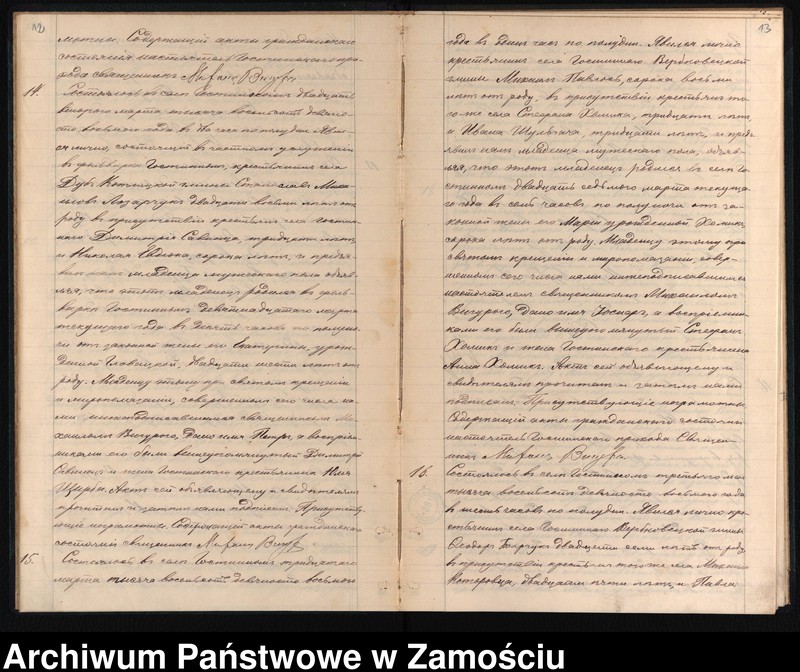 12
мотны. Содержащій акты гражданскаго
состоянія настоятель Гостиннскаго при-
хода священникъ
14.
Состоялось въ селѣ Гостинномъ двадцать
втораго марта тысяча восемьсотъ девяно-
сто восьмаго года въ два часа по полудни. Явил-
ся лично, состоящій въ частномъ услуженіи
въ фольваркѣ Гостинномъ, крестьянинъ села
Дубъ Котлицкой гмины Станиславъ Миха-
иловъ двадцати восьми лѣтъ отъ
роду въ присутствіи крестьянъ села Гостин-
наго Димитрія тридцати лѣтъ
и Николая сорока лѣтъ, и предъя-
вилъ намъ младенца мужескаго пола объяв-
ляя, что этотъ младенецъ родился въ фоль-
варкѣ Гостинномъ девятнадцатаго марта
текущаго года въ десять часовъ по полуно-
чи отъ законной жены его Екатерины, урож-
денной двадцати шести лѣтъ отъ
роду. Младенцу этому при святомъ крещеніи
и миропомазаніи, совершенномъ его числа на-
ми нижеподписавшимся священникомъ Ми-
хаиломъ дано имя Петръ, а воспріем-
никами его были вышеупомянутый Димитрій
и жена Гостинскаго крестьянина
Актъ сей объявляющему и свидѣтелямъ
прочитанъ и затѣмъ нами подписанъ. Присутству-
ющіе неграмотны. Содержащій акты гражданскаго
состоянія священникъ
15.
Состоялось въ селѣ Гостинномъ тридцатаго
марта тысяча восемьсотъ девяносто восьмаго
13
года въ часъ по полудни. Явился лично
крестьянинъ села Гостиннаго Вербковицкой
гмины Михаилъ Павлосъ, сорока восьми
лѣтъ отъ роду, въ присутствіи крестьянъ то-
го же села Стефана Хомика, тридцати лѣтъ,
и Ивана тридцати лѣтъ, и предъ-
явилъ намъ младенца мужескаго пола, объяв-
ляя, что этотъ младенецъ родился въ селѣ Го-
стинномъ двадцать седьмаго марта текуща-
го года въ семь часовъ по полуночи отъ за-
конной жены его Маріи урожденной Хомикъ,
сорока лѣтъ отъ роду. Младенцу этому при
святомъ крещеніи и миропомазаніи, совер-
шенномъ сего числа нами нижеподписавшимся
настоятелемъ священникомъ Михаиломъ
дано имя а воспріемни-
ками его были вышеупомянутый Стефанъ
Хомикъ и жена Гостинскаго крестьянина
Анна Хомикъ. Актъ сей объявляющему и
свидѣтелямъ прочитанъ и затѣмъ нами
подписанъ. Присутствующіе неграмотны
Содержащій акты гражданскаго состоянія
настоятель Гостинскаго прихода Священ-
никъ
16.
Состоялось въ селѣ Гостинномъ третьяго мая
тысяча восемьсотъ девяносто восьмаго года
въ шесть часовъ по полудни. Явился лично кре-
стьянинъ села Гостиннаго Вербковицкой гмины
Ѳеодоръ двадцати семи лѣтъ отъ роду
въ присутствіи крестьянъ того же села Михаила
двадцати пяти лѣтъ, и Павла
Archiwum Państwowe w Zamościu